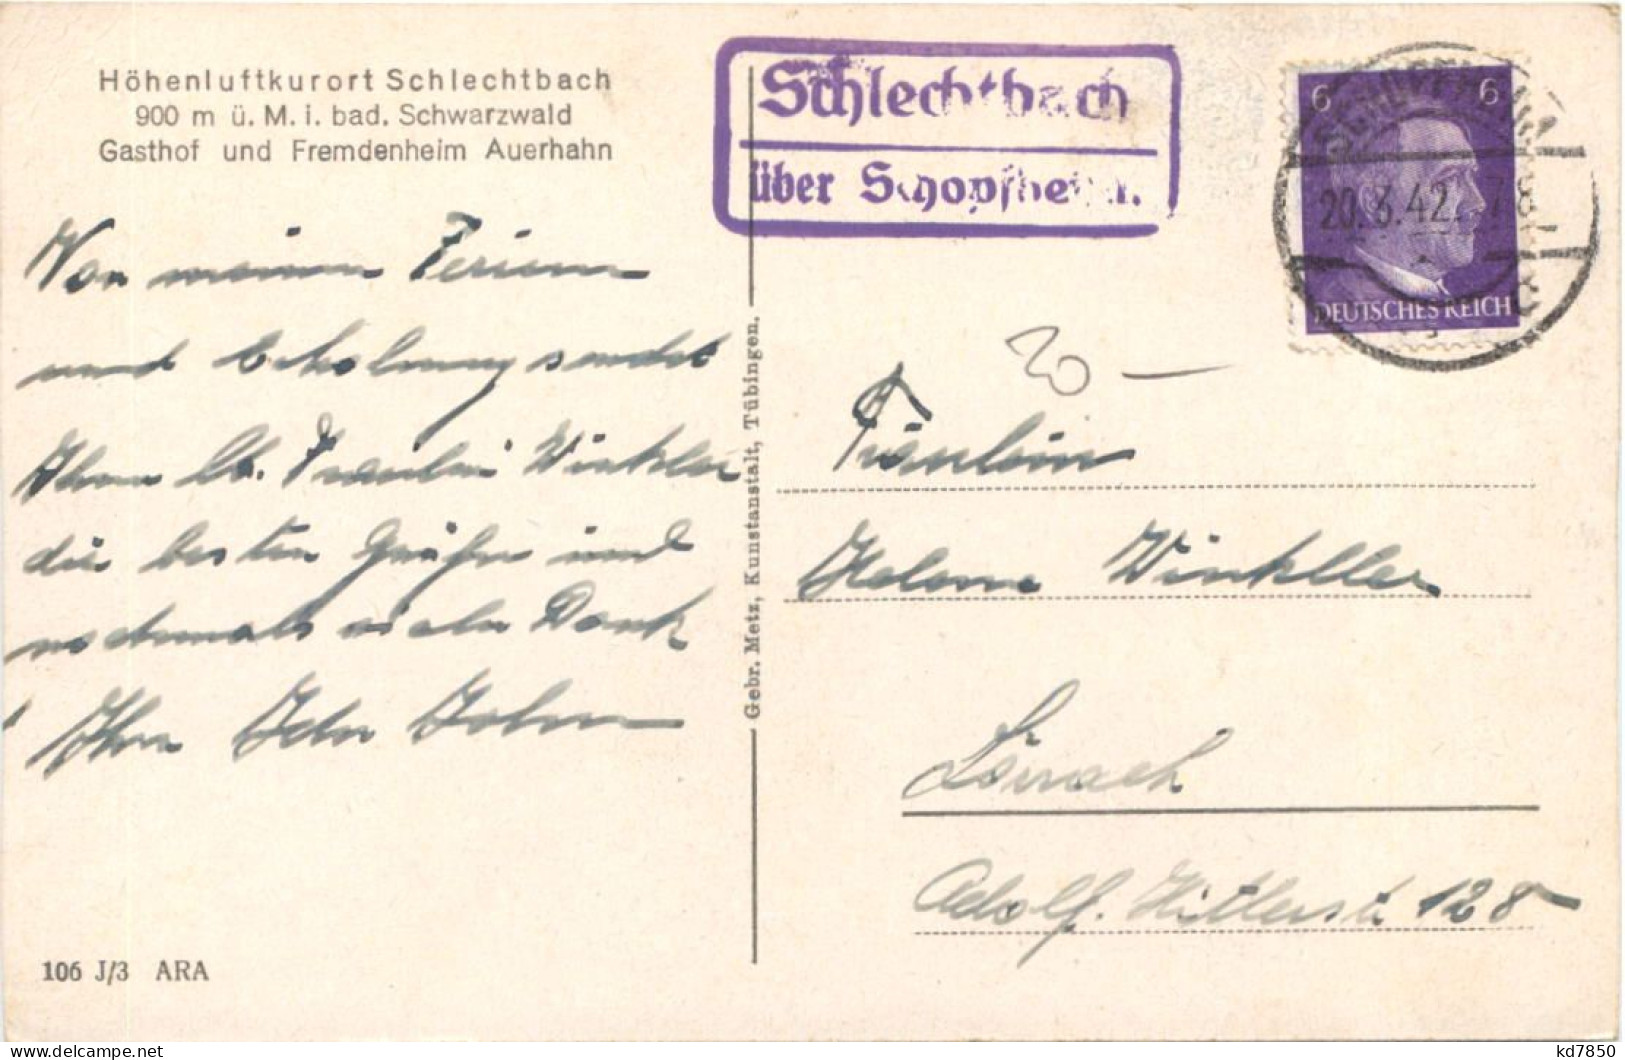 Höhenluftkurort Schlechtbach
900 m ü. M. i. bad. Schwarzwald
Gasthof und Fremdenheim Auerhahn
Schlechtbach
über Schopfheim.
6 6
20.6.42. 7-8
DEUTSCHES REICH
Von meinen Ferien
und Erholung sendet
Ihnen lb. Fräulein Winkler
die besten Grüße und
nochmals vielen Dank
Ihre
Gebr. Metz, Kunstanstalt, Tübingen.
20 —
Fräulein
Helene Winkller
Lörrach
Adolf. Hitlerst. 128
106 J/3 ARA
kd7850